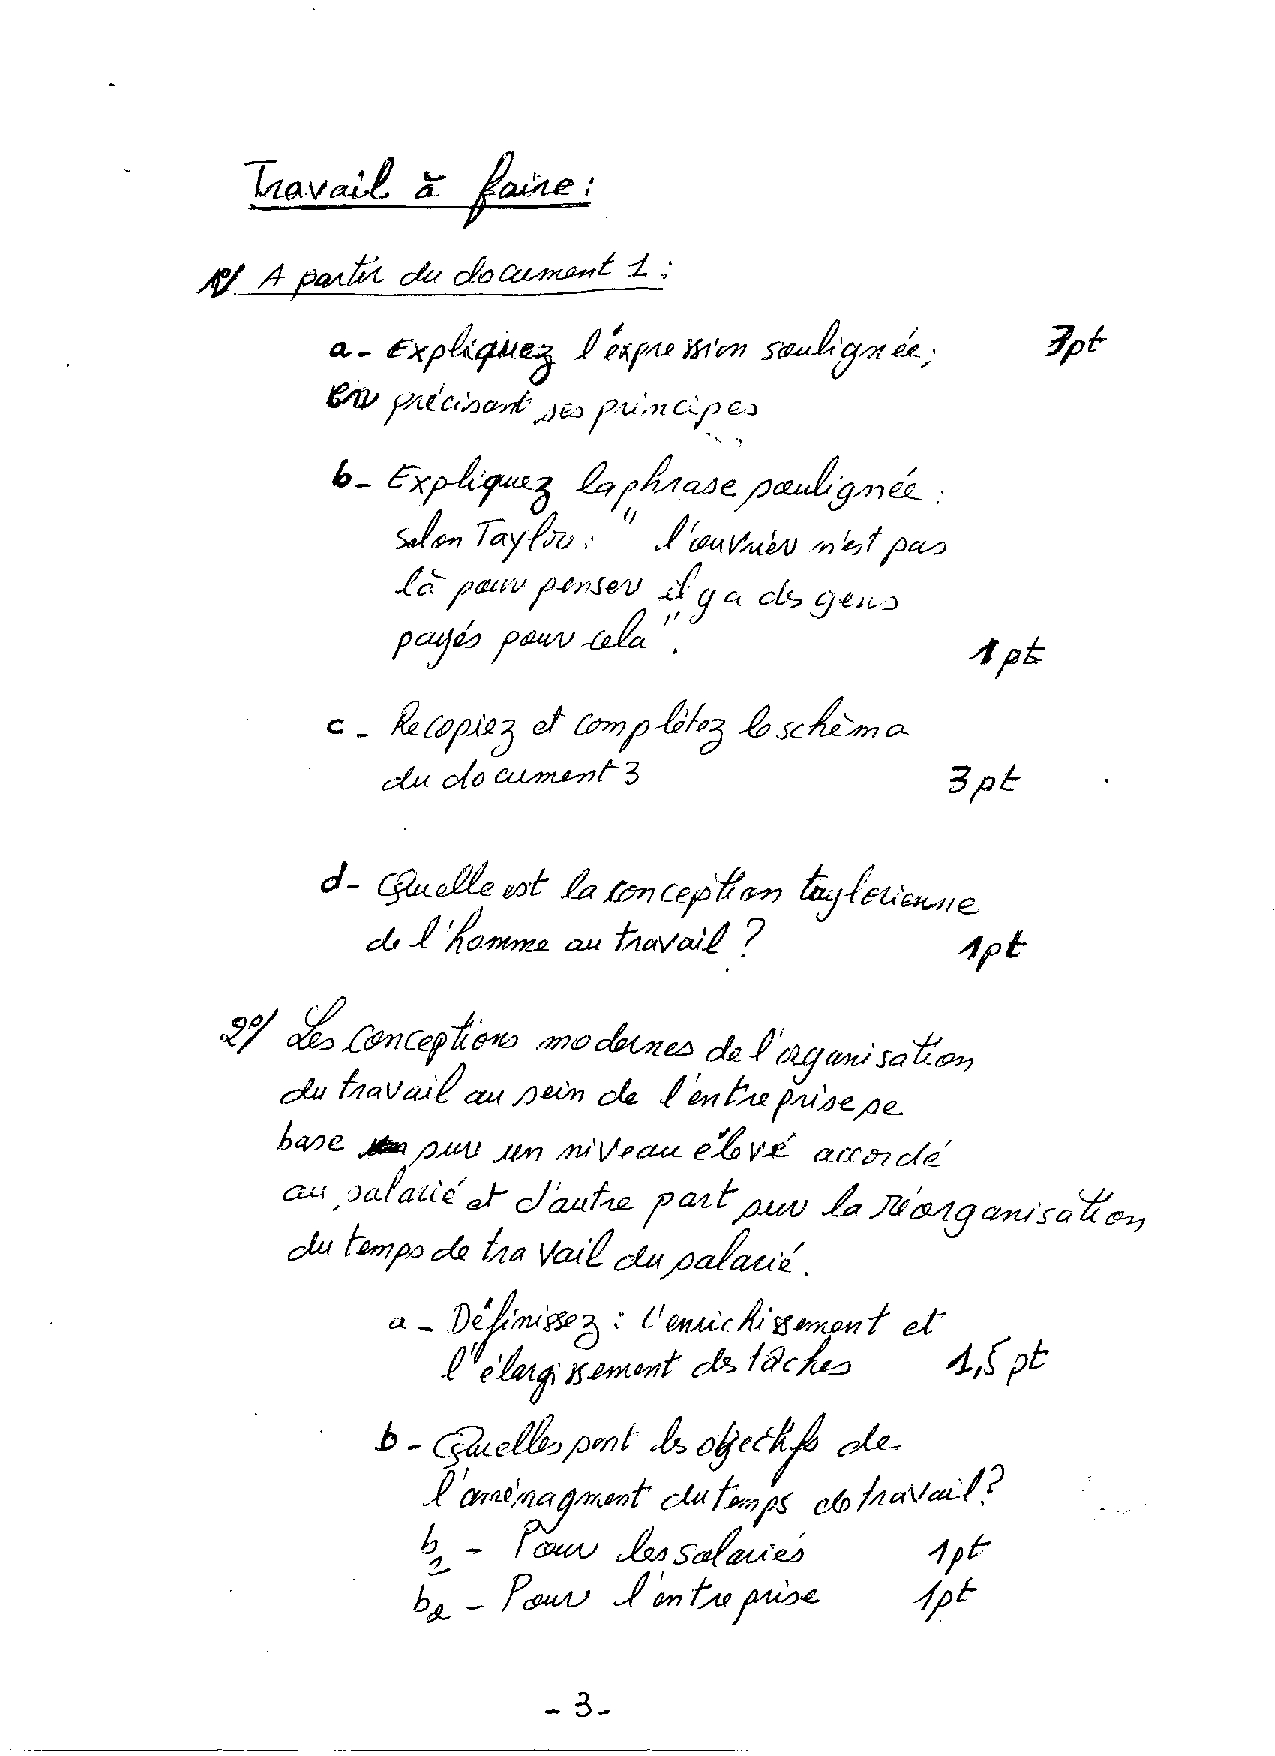 Travail à faire :
1°/ A partir du document 1 :
a - Expliquez l'éxpression soulignée, 3pt
en précisant ses principes
b - Expliquez la phrase soulignée :
Selon Taylor : " l'ouvrièr n'est pas
là pour penser il y a des gens
payés pour cela ". 1pt
c - Recopiez et complétez le schèma
du document 3 3pt
d - Quelle est la conception taylerienne
de l'homme au travail ? 1pt
2°/ Les Conceptions modernes de l'organisation
du travail au sein de l'entreprise se
base sur un niveau élevé accordé
au salarié et d'autre part sur la réorganisation
du temps de travail du salarié.
a - Définissez : l'enrichissement et
l'élargissement des tâches 1,5 pt
b - Quelles sont les objectifs de
l'aménagment du temps de travail ?
b1 - Pour les salariés 1pt
b2 - Pour l'entreprise 1pt
- 3 -